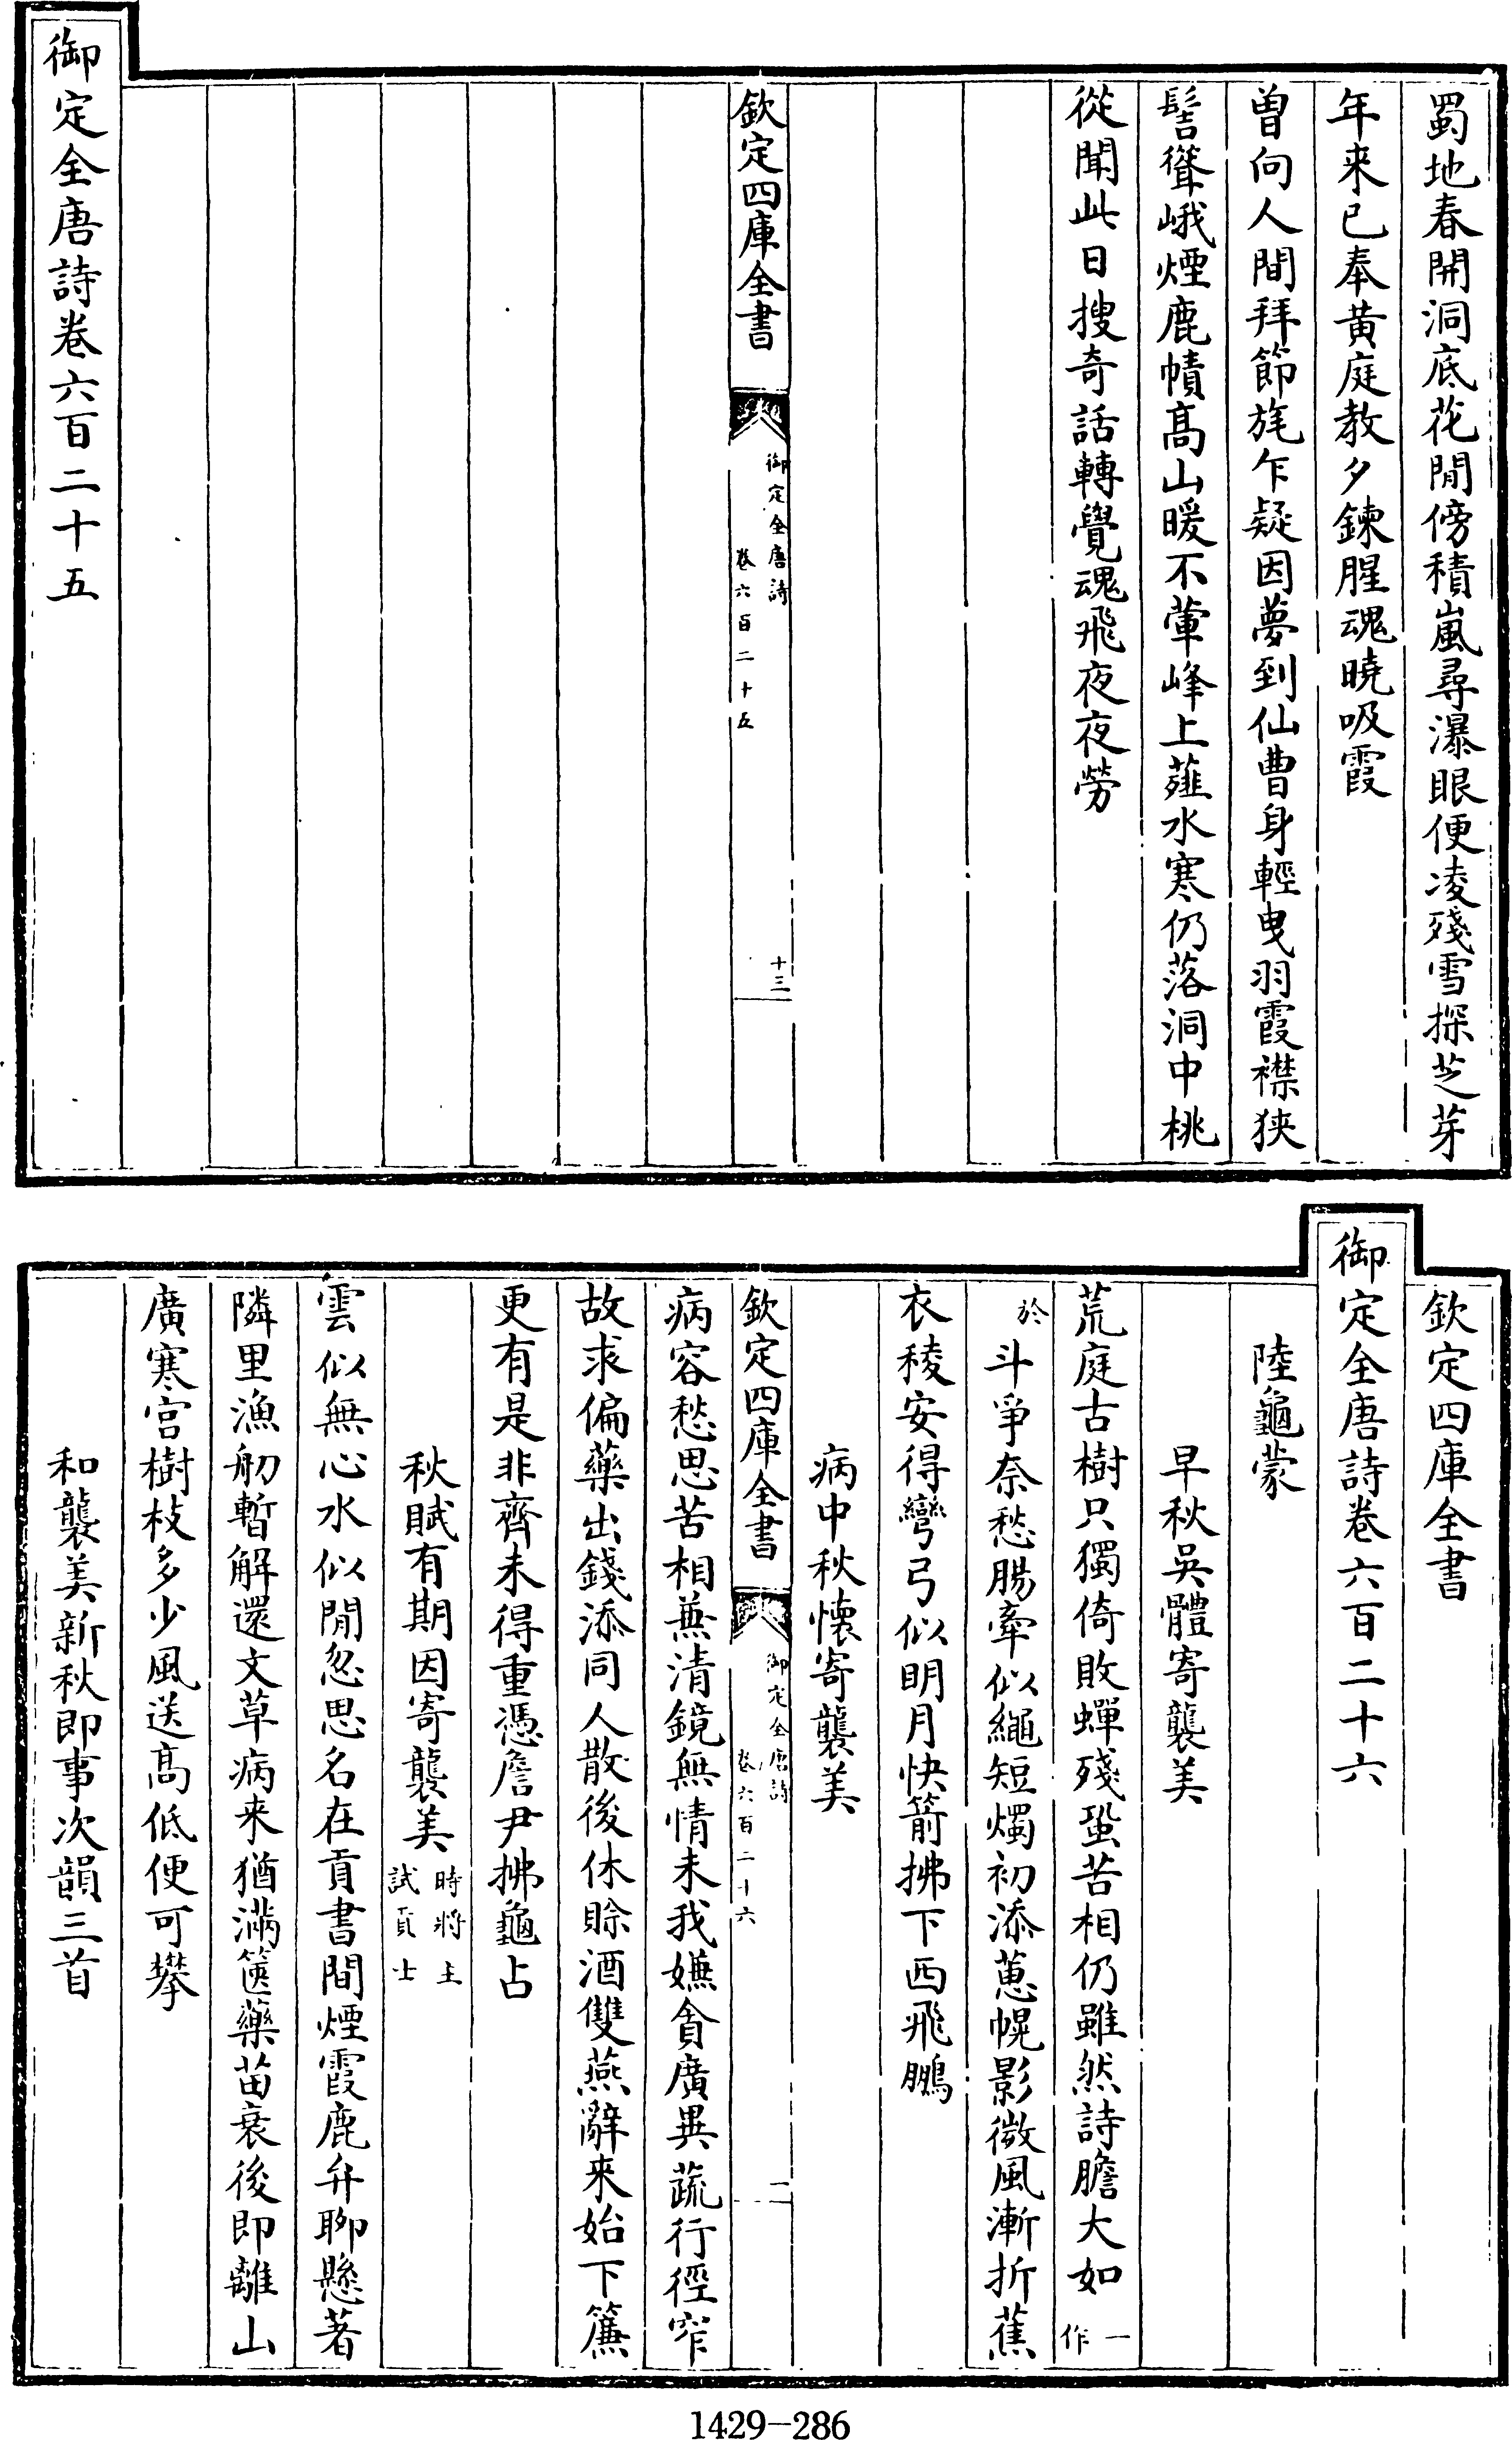 蜀地春開洞底花閒傍積嵐尋瀑眼便凌殘雪探芝芽
年来已奉黄庭教夕鍊腥魂曉吸霞
曽向人間拜節旄乍疑因夢到仙曹身輕曳羽霞襟狹
髻聳峨煙鹿幘髙山暖不葷峰上薤水寒仍落洞中桃
從聞此日搜奇話轉覺魂飛夜夜勞
欽定四庫全書
御定全唐詩
卷六百二十五
十三
御定全唐詩卷六百二十五
欽定四庫全書
御定全唐詩卷六百二十六
陸龜蒙
早秋吳體寄襲美
荒庭古樹只獨倚敗蟬殘蛩苦相仍雖然詩膽大如一作
於斗爭奈愁腸牽似繩短燭初添蕙幌影微風漸折蕉
衣稜安得彎弓似明月快箭拂下西飛鵬
病中秋懷寄襲美
欽定四庫全書
御定全唐詩
卷六百二十六
一
病容愁思苦相兼清鏡無情未我嫌貪廣異蔬行徑窄
故求偏藥出錢添同人散後休賒酒雙燕辭来始下簾
更有是非齊未得重憑詹尹拂龜占
秋賦有期因寄襲美時將主試貢士
雲似無心水似閒忽思名在貢書間煙霞鹿弁聊懸著
隣里漁舠暫解還文草病来猶滿篋藥苗衰後即離山
廣寒宫樹枝多少風送髙低便可攀
和襲美新秋即事次韻三首
1429-286